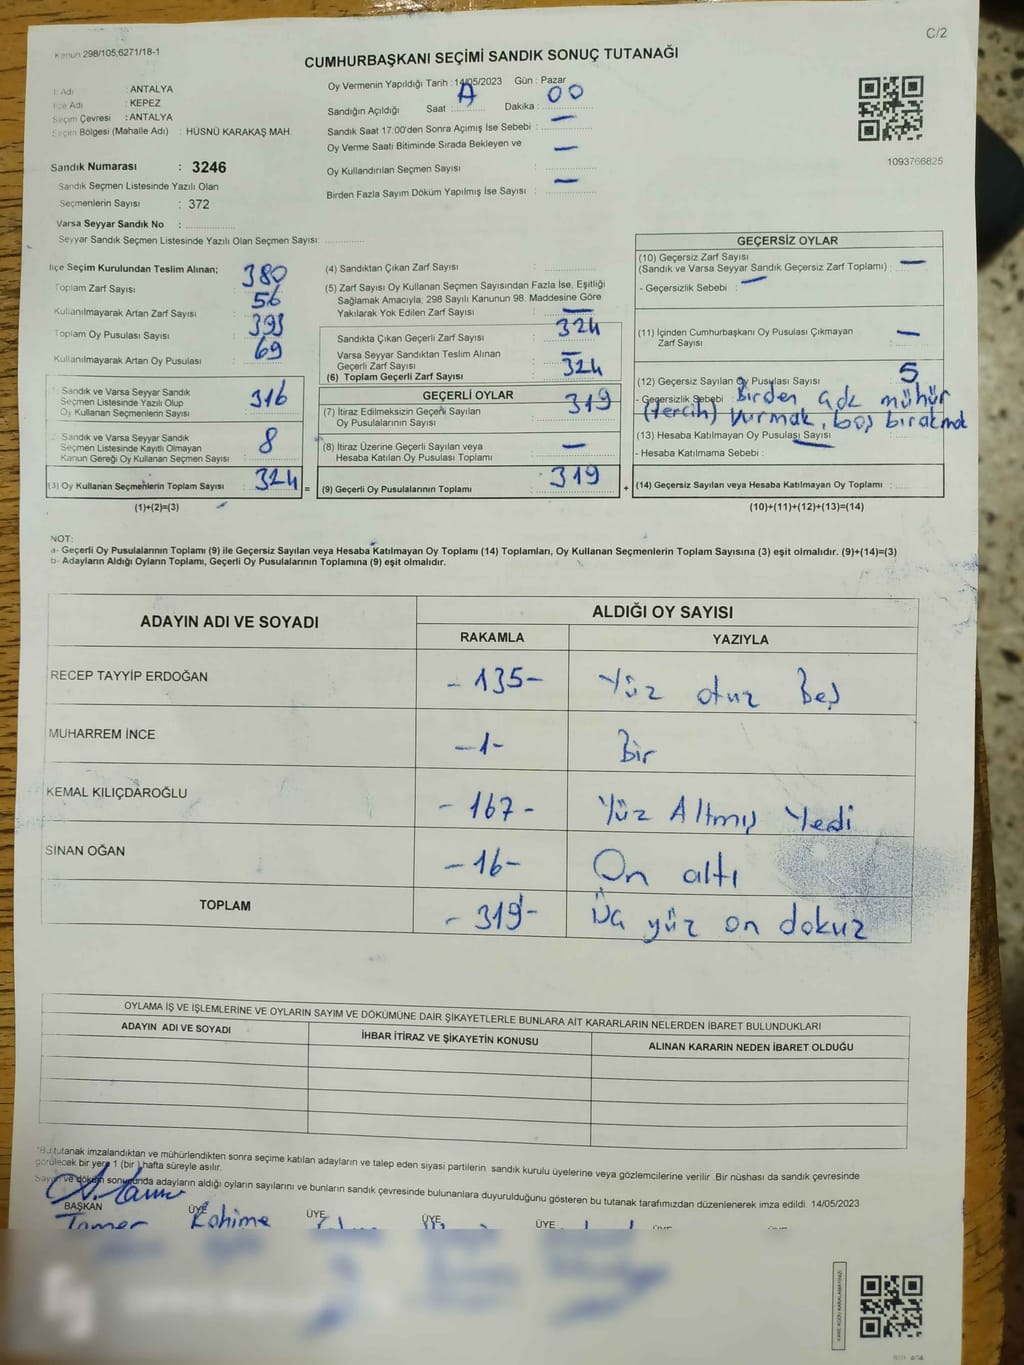 Kanun 298/105,6271/18-1
C/2
CUMHURBAŞKANI SEÇİMİ SANDIK SONUÇ TUTANAĞI
İl Adı : ANTALYA
İlçe Adı : KEPEZ
Seçim Çevresi : ANTALYA
Seçim Bölgesi (Mahalle Adı) : HÜSNÜ KARAKAŞ MAH.
Sandık Numarası : 3246
Sandık Seçmen Listesinde Yazılı Olan
Seçmenlerin Sayısı : 372
Varsa Seyyar Sandık No :
Seyyar Sandık Seçmen Listesinde Yazılı Olan Seçmen Sayısı:
Oy Vermenin Yapıldığı Tarih : 14/05/2023 Gün : Pazar
Sandığın Açıldığı Saat : Dakika : 00
Sandık Saat 17:00'den Sonra Açımış İse Sebebi : —
Oy Verme Saati Bitiminde Sırada Bekleyen ve
Oy Kullandırılan Seçmen Sayısı : —
Birden Fazla Sayım Döküm Yapılmış İse Sayısı : —
1093766825
İlçe Seçim Kurulundan Teslim Alınan;
Toplam Zarf Sayısı : 380
Kullanılmayarak Artan Zarf Sayısı : 56
Toplam Oy Pusulası Sayısı : 393
Kullanılmayarak Artan Oy Pusulası : 69
Sandık ve Varsa Seyyar Sandık
Seçmen Listesinde Yazılı Olup
Oy Kullanan Seçmenlerin Sayısı : 316
Sandık ve Varsa Seyyar Sandık
Seçmen Listesinde Kayıtlı Olmayan
Kanun Gereği Oy Kullanan Seçmen Sayısı : 8
(3) Oy Kullanan Seçmenlerin Toplam Sayısı : 324 =
(1)+(2)=(3)
(4) Sandıktan Çıkan Zarf Sayısı :
(5) Zarf Sayısı Oy Kullanan Seçmen Sayısından Fazla İse, Eşitliği
Sağlamak Amacıyla, 298 Sayılı Kanunun 98. Maddesine Göre
Yakılarak Yok Edilen Zarf Sayısı : —
Sandıkta Çıkan Geçerli Zarf Sayısı : 324
Varsa Seyyar Sandıktan Teslim Alınan
Geçerli Zarf Sayısı : —
(6) Toplam Geçerli Zarf Sayısı : 324
GEÇERLİ OYLAR
(7) İtiraz Edilmeksizin Geçerli Sayılan
Oy Pusulalarının Sayısı : 319
(8) İtiraz Üzerine Geçerli Sayılan veya
Hesaba Katılan Oy Pusulası Toplamı : —
(9) Geçerli Oy Pusulalarının Toplamı : 319 +
GEÇERSİZ OYLAR
(10) Geçersiz Zarf Sayısı
(Sandık ve Varsa Seyyar Sandık Geçersiz Zarf Toplamı) : —
- Geçersizlik Sebebi : —
(11) İçinden Cumhurbaşkanı Oy Pusulası Çıkmayan
Zarf Sayısı : —
(12) Geçersiz Sayılan Oy Pusulası Sayısı : 5
- Geçersizlik Sebebi : Birden çok mühür
(tercih) vurmak, boş bırakmak
(13) Hesaba Katılmayan Oy Pusulası Sayısı —
- Hesaba Katılmama Sebebi :
(14) Geçersiz Sayılan veya Hesaba Katılmayan Oy Toplamı :
(10)+(11)+(12)+(13)=(14)
NOT:
a- Geçerli Oy Pusulalarının Toplamı (9) ile Geçersiz Sayılan veya Hesaba Katılmayan Oy Toplamı (14) Toplamları, Oy Kullanan Seçmenlerin Toplam Sayısına (3) eşit olmalıdır. (9)+(14)=(3)
b- Adayların Aldığı Oyların Toplamı, Geçerli Oy Pusulalarının Toplamına (9) eşit olmalıdır.
ADAYIN ADI VE SOYADI
ALDIĞI OY SAYISI
RAKAMLA YAZIYLA
RECEP TAYYİP ERDOĞAN - 135 - Yüz otuz Beş
MUHARREM İNCE - 1 - Bir
KEMAL KILIÇDAROĞLU - 167 - Yüz Altmış Yedi
SİNAN OĞAN - 16 - On altı
TOPLAM - 319 - Üç yüz on dokuz
OYLAMA İŞ VE İŞLEMLERİNE VE OYLARIN SAYIM VE DÖKÜMÜNE DAİR ŞİKAYETLERLE BUNLARA AİT KARARLARIN NELERDEN İBARET BULUNDUKLARI
ADAYIN ADI VE SOYADI İHBAR İTİRAZ VE ŞİKAYETİN KONUSU ALINAN KARARIN NEDEN İBARET OLDUĞU
*Bu tutanak imzalandıktan ve mühürlendikten sonra seçime katılan adayların ve talep eden siyasi partilerin sandık kurulu üyelerine veya gözlemcilerine verilir. Bir nüshası da sandık çevresinde
görülecek bir yere 1 (bir) hafta süreyle asılır.
Sayım ve döküm sonucunda adayların aldığı oyların sayılarını ve bunların sandık çevresinde bulunanlara duyurulduğunu gösteren bu tutanak tarafımızdan düzenlenerek imza edildi. 14/05/2023
BAŞKAN ÜYE ÜYE ÜYE ÜYE
Tamer Rahime